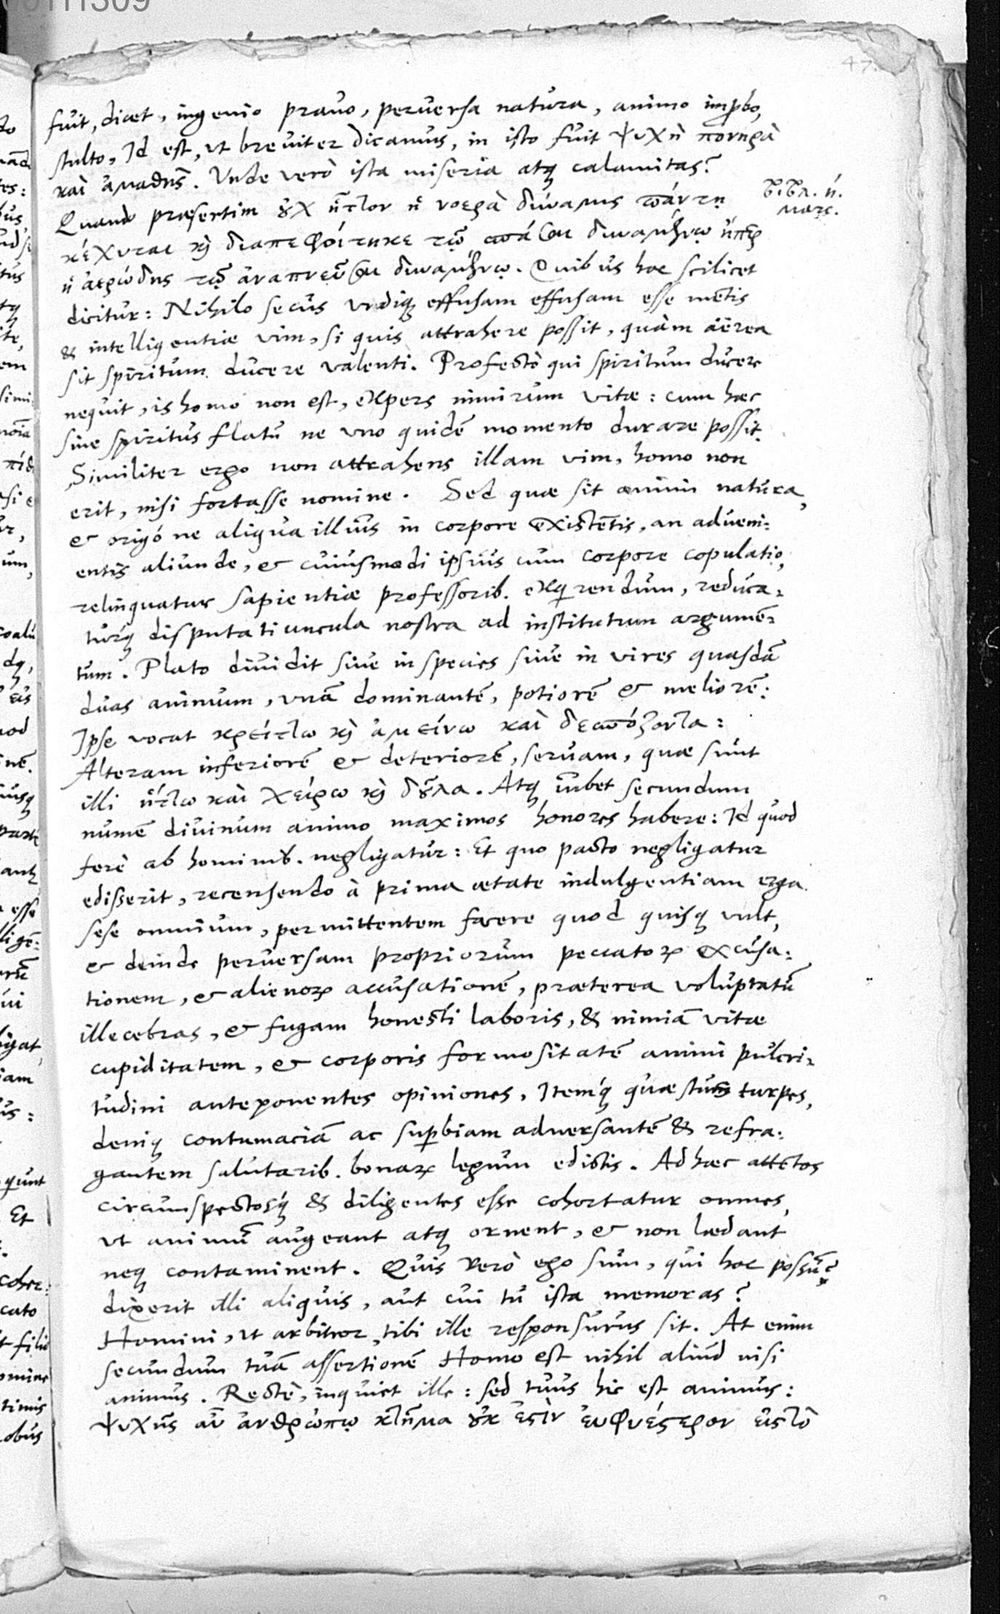 47.
fuit, dicet, ingenio prauo, peruersa natura, animo improbo,
stulto. Id est, ut breuiter dicamus, in isto fuit ψυχὴ πονηρὰ
καὶ ἀμαθής. Vnde verò ista miseria atq calamitas?
Quando praesertim ȣ̓χ ἧττον ἡ νοερὰ δύναμις πάντη
κέχυται κỳ διαπεφοίτηκε τῷ σπάσαι δυναμένῳ ἤπερ
ἡ ἀερώδης τῷ ἀναπνεῦσαι δυναμένῳ. Quibus hoc scilicet
βιβλ. ή.
μαρϰ.
dicitur: Nihilo secus undiq effusam effusam esse mentis
& intelligentiae vim, si quis attrahere possit, quàm aërea
sit spiritum ducere valenti. Profectò qui spiritum ducere
nequit, is homo non est, expers nimirum vitae: cum haec
sine spiritus flatu ne uno quidē momento durare possit.
Similiter ergo non attrahens illam vim, homo non
erit, nisi fortasse nomine. Sed quae sit animi natura,
et origó ne aliqua illius in corpore existētis, an adueni:
entis aliunde, et cuiusmodi ipsius cum corpore copulatio,
relinquatur sapientiae professorib. exqrendum, reduca:
turq disputatiuncula nostra ad institutum argumē:
tum. Plato diuidit siue in species siue in vires quasdā
duas animum, unā dominantē, potiorē et meliorē:
Ipse vocat κρείττω κỳ ἀμείνω καὶ δεσπόζοντα:
Alteram inferiorē et deteriorē, seruam, quae sunt
illi ἥττω καὶ χείρω κỳ δȣ͂λα. Atq iubet secundum
numē diuinum animo maximos honores habere: Id quod
ferè ab hominib. negligatur: Et quo pacto negligatur
edisserit, recensendo à prima aetate indulgentiam erga
sese omnium, permittentem facere quod quisq vult,
et deinde peruersam propriorum peccatoꝝ excusa:
tionem, et alienoꝝ accusationē, praeterea voluptatū
illecebras, et fugam honesti laboris, & nimiā vitae
cupiditatem, et corporis formositatē animi pulcri:
tudini anteponentes opiniones, Itemq quaestus turpes,
deniq contumaciā ac supbiam aduersantē & refra:
gantem salutarib. bonaꝝ legum edictis. Ad haec attētos
circumspectosq & diligentes esse cohortatur omnes,
ut animū augeant atq ornent, et non laedant
neq contaminent. Quis verò ego sum, qui hoc possū?
dixerit illi aliquis, aut cui tu ista memoras?
Homini, ut arbitror, tibi ille responsurus sit. At enim
secundum tuā assertionē Homo est nihil aliud nisi
animus. Rectè, inquiet ille: sed tuus hic est animus:
ψυχῆς ȣ̓͂ν ἀνθρώπῳ κτῆμα ȣ̓κ ἔστιν εὐφυέστερον εἰς τὸ